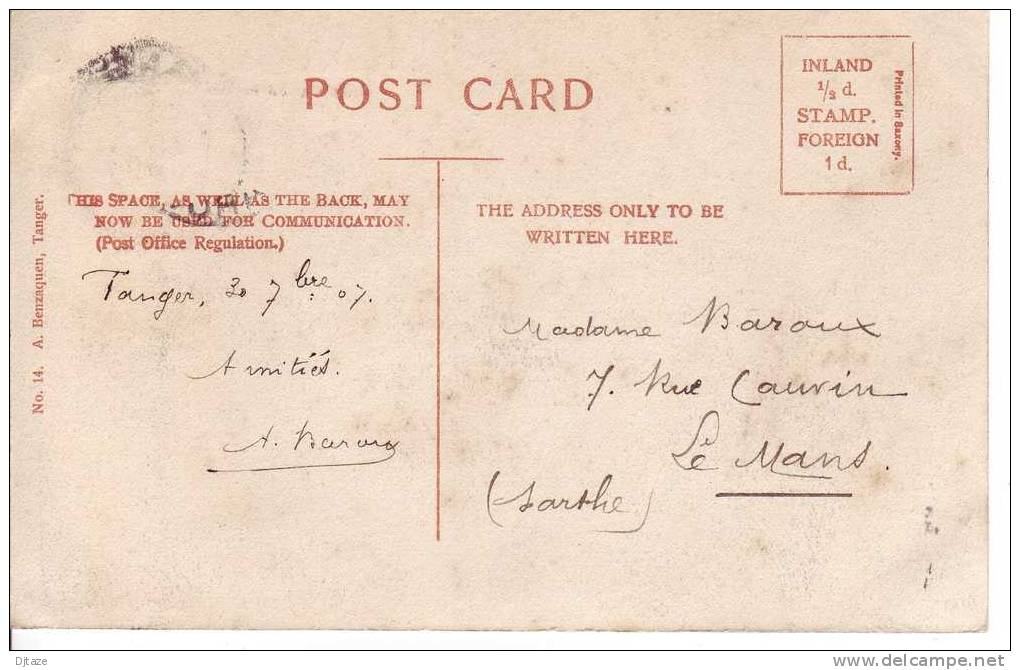 POST CARD
INLAND
½ d.
STAMP.
FOREIGN
1 d.
Printed in Saxony.
THIS SPACE, AS WELL AS THE BACK, MAY
NOW BE USED FOR COMMUNICATION.
(Post Office Regulation.)
THE ADDRESS ONLY TO BE
WRITTEN HERE.
No. 14. A. Benzaquen, Tanger.
Tanger, 30 7bre 07.
Amitiés.
A. Baroux
Madame Baroux
7. Rue Cauvin
Le Mans.
(Sarthe)
Djtaze
www.delcampe.net